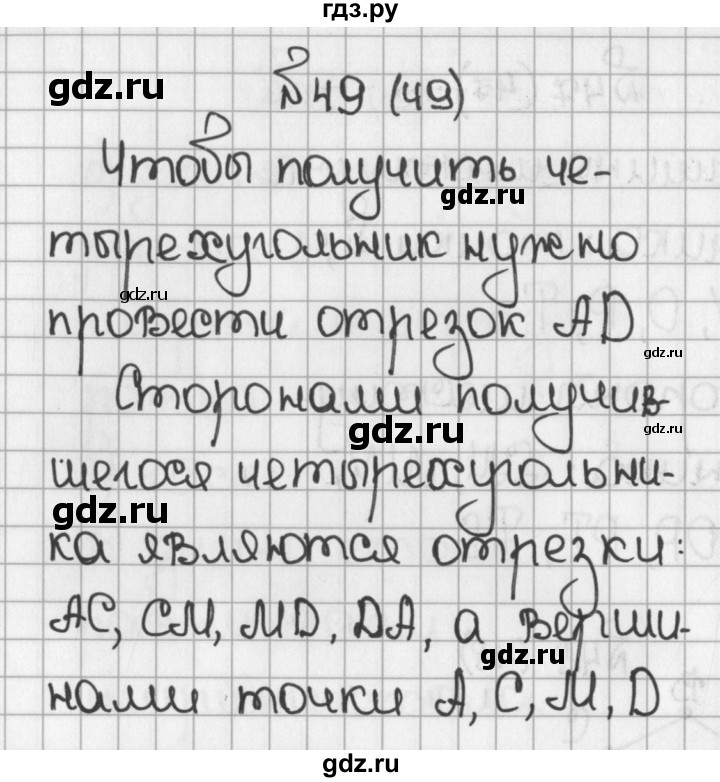 гдз.ру
gdz.ru
№49 (49)
Чтобы получить че-
gdz.ru
тырехугольник нужно
gdz.ru
провести отрезок AD
gdz.ru
Сторонами получив-
gdz.ru
gdz.ru
шегося четырехугольни-
gdz.ru
ка являются отрезки:
AC, CM, MD, DA, а верши-
gdz.ru
нами точки A, C, M, D
gdz.ru